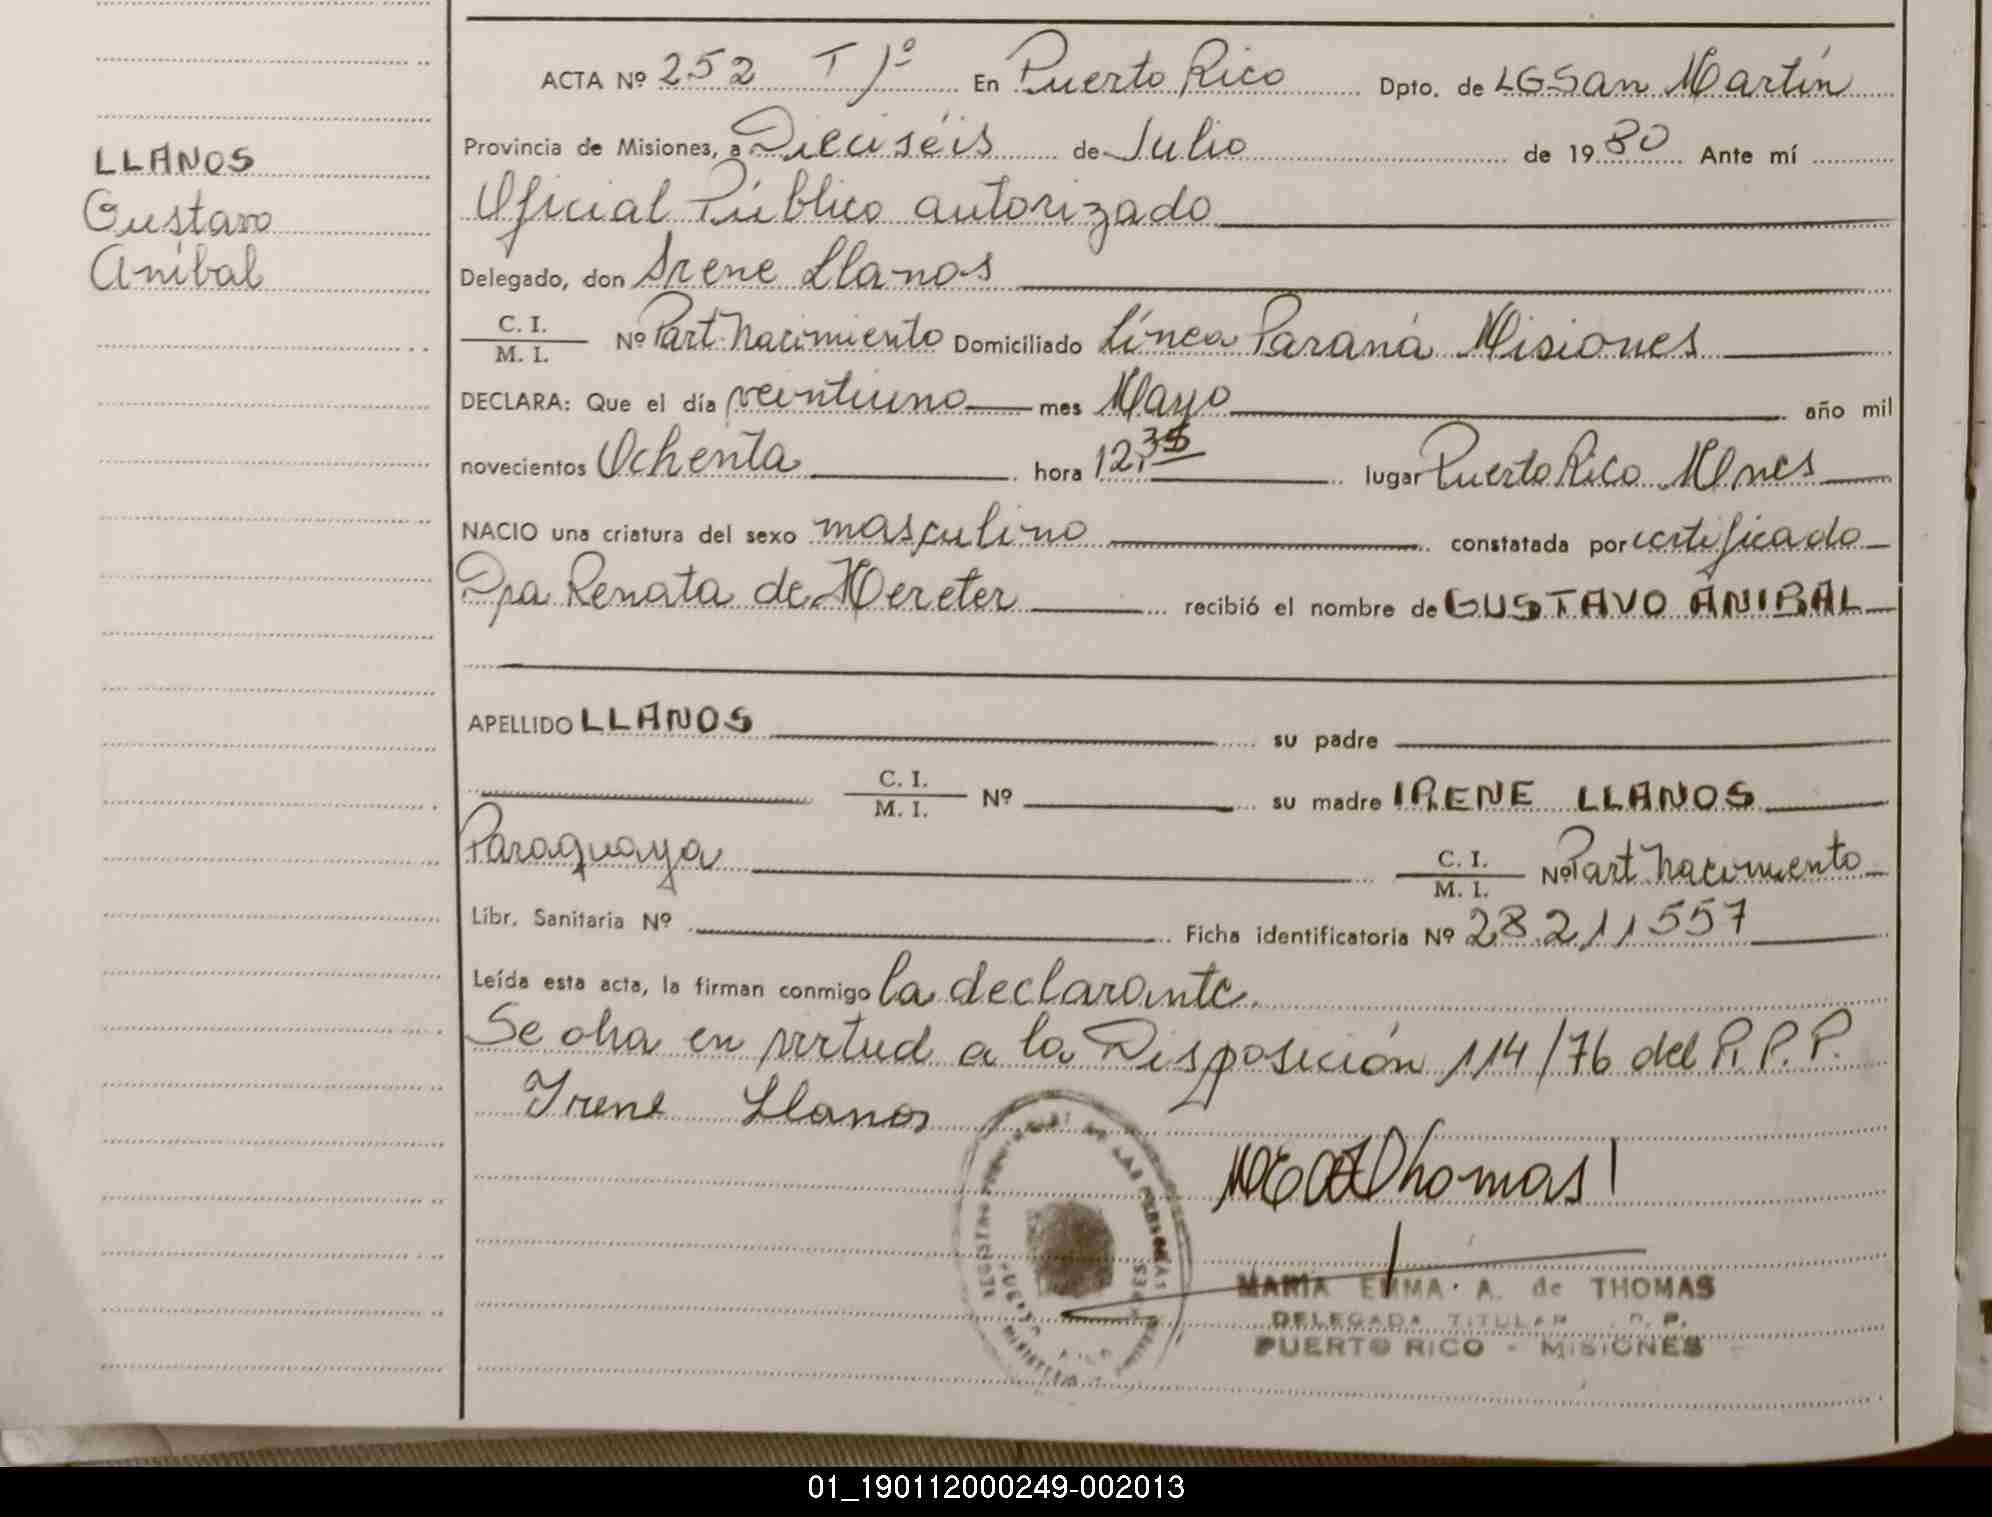 LLANOS
Gustavo
Aníbal
ACTA Nº 252 T 1º En Puerto Rico Dpto. de LGSan Martín
Provincia de Misiones, a Dieciséis de Julio de 1980 Ante mí
Oficial Público autorizado
Delegado, don Irene Llanos
C. I.
M. I. Nº Part. Nacimiento Domiciliado Línea Paraná Misiones
DECLARA: Que el día veintiuno mes Mayo año mil
novecientos Ochenta hora 12, lugar Puerto Rico Mnes
NACIO una criatura del sexo masculino constatada por certificado
Dra Renata de Hereter recibió el nombre de GUSTAVO ANIBAL
APELLIDO LLANOS su padre
C. I.
M. I. Nº su madre IRENE LLANOS
Paraguaya C. I.
M. I. Nº Part Nacimiento
Libr. Sanitaria Nº Ficha identificatoria Nº 28.211557
Leída esta acta, la firman conmigo la declarante.
Se en virtud a la Disposición 114/76 del R. P. P.
Irene Llanos
Thomas
MARIA EMMA A. de THOMAS
DELEGADA TITULAR P.
PUERTO RICO - MISIONES
01_190112000249-002013